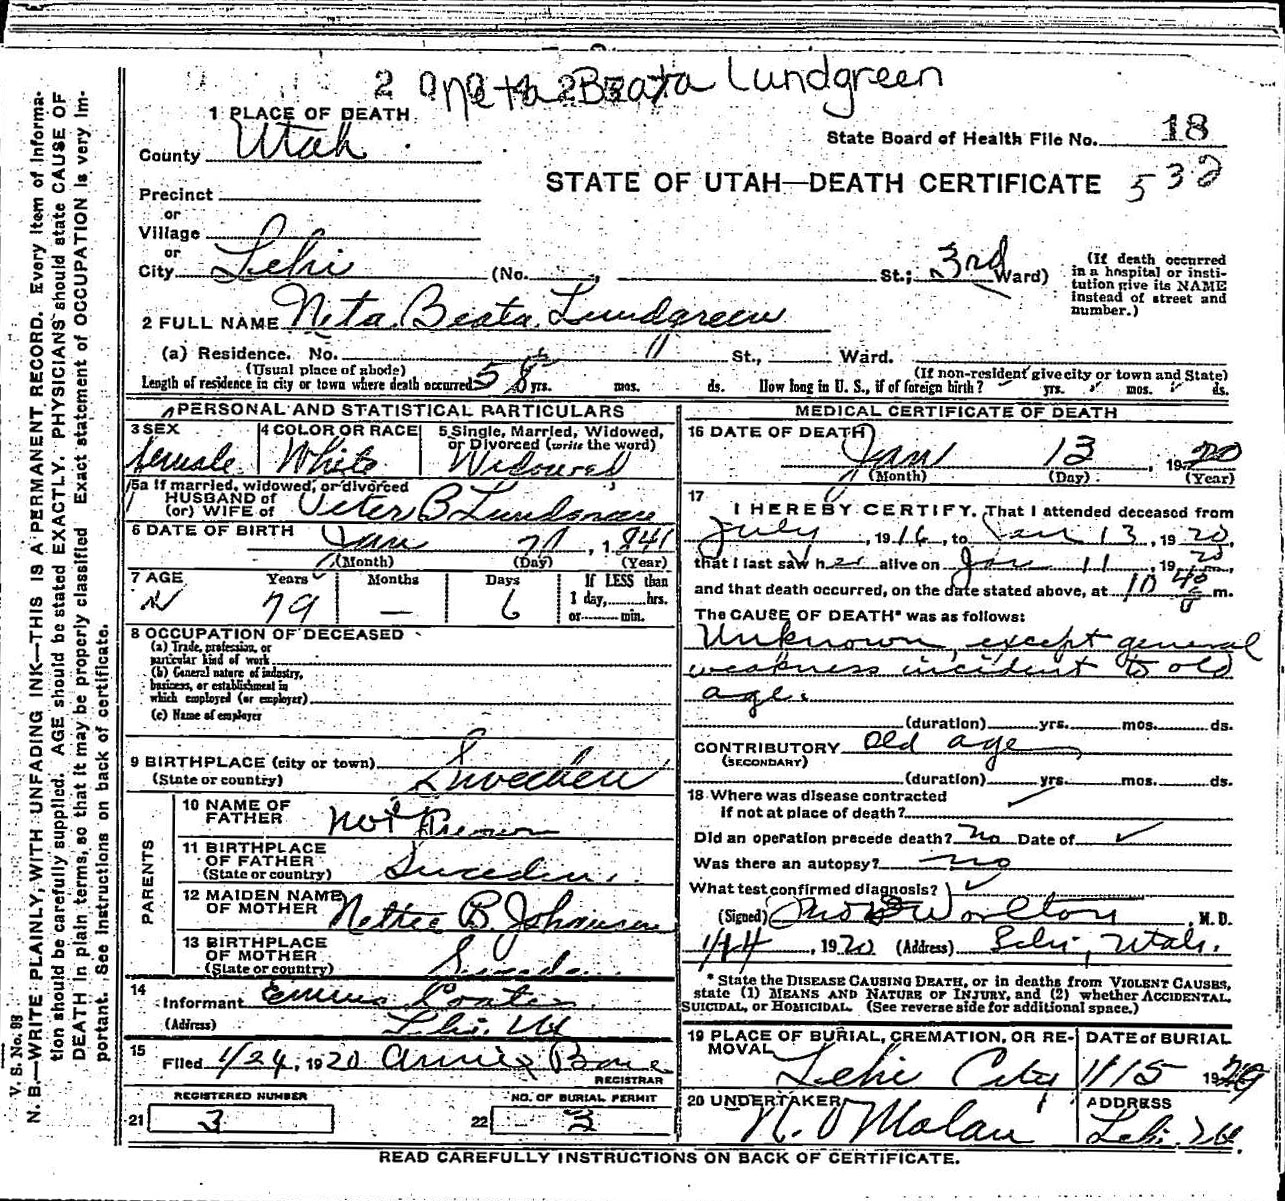 Neta Beata Lundgreen
1 PLACE OF DEATH
County Utah
State Board of Health File No. 18
STATE OF UTAH—DEATH CERTIFICATE 532
Precinct
or
Village
or
City Lehi (No. , St.; 3rd Ward)
(If death occurred in a hospital or institution give its NAME instead of street and number.)
2 FULL NAME Neta Beata Lundgreen
(a) Residence. No. " St., Ward.
(Usual place of abode) (If non-resident give city or town and State)
Length of residence in city or town where death occurred 58 yrs. mos. ds. How long in U. S., if of foreign birth? yrs. mos. ds.
PERSONAL AND STATISTICAL PARTICULARS
3 SEX Female
4 COLOR OR RACE White
5 Single, Married, Widowed, or Divorced (write the word) Widowed
5a If married, widowed, or divorced
HUSBAND of
(or) WIFE of Peter B Lundgreen
6 DATE OF BIRTH Jan 7, 1841
(Month) (Day) (Year)
7 AGE Years Months Days If LESS than
1 day, hrs.
or min.
79 — 6
8 OCCUPATION OF DECEASED
(a) Trade, profession, or
particular kind of work
(b) General nature of industry,
business, or establishment in
which employed (or employer)
(c) Name of employer
9 BIRTHPLACE (city or town)
(State or country) Sweden
PARENTS
10 NAME OF FATHER Not Known
11 BIRTHPLACE OF FATHER
(State or country) Sweden
12 MAIDEN NAME OF MOTHER Nettee B. Johanson
13 BIRTHPLACE OF MOTHER
(State or country) Sweden
14
Informant Emma Coates
(Address) Lehi, Ut
15
Filed 1/24, 1920 Annie Bone
REGISTRAR
REGISTERED NUMBER
21 3
NO. OF BURIAL PERMIT
22 3
MEDICAL CERTIFICATE OF DEATH
16 DATE OF DEATH
Jan 13, 1920
(Month) (Day) (Year)
17
I HEREBY CERTIFY, That I attended deceased from
July, 1916, to Jan 13, 1920,
that I last saw her alive on Jan 11, 1920,
and that death occurred, on the date stated above, at 10 40 m.
The CAUSE OF DEATH* was as follows:
Unknown, except general
weakness incident to old
age.
(duration) yrs. mos. ds.
CONTRIBUTORY Old age
(SECONDARY)
(duration) yrs. mos. ds.
18 Where was disease contracted
if not at place of death?
Did an operation precede death? No Date of
Was there an autopsy? no
What test confirmed diagnosis?
(Signed) Worlton, M. D.
1/14, 1920 (Address) Lehi, Utah.
* State the DISEASE CAUSING DEATH, or in deaths from VIOLENT CAUSES,
state (1) MEANS AND NATURE OF INJURY, and (2) whether ACCIDENTAL,
SUICIDAL, or HOMICIDAL. (See reverse side for additional space.)
19 PLACE OF BURIAL, CREMATION, OR REMOVAL
Lehi City
DATE of BURIAL
1/15 1920
20 UNDERTAKER
N. O Malan
ADDRESS
Lehi, Ut.
READ CAREFULLY INSTRUCTIONS ON BACK OF CERTIFICATE.
V. S. No. 98
N. B.—WRITE PLAINLY, WITH UNFADING INK—THIS IS A PERMANENT RECORD. Every item of Informa-
tion should be carefully supplied. AGE should be stated EXACTLY. PHYSICIANS should state CAUSE OF
DEATH in plain terms, so that it may be properly classified. Exact statement of OCCUPATION is very im-
portant. See instructions on back of certificate.